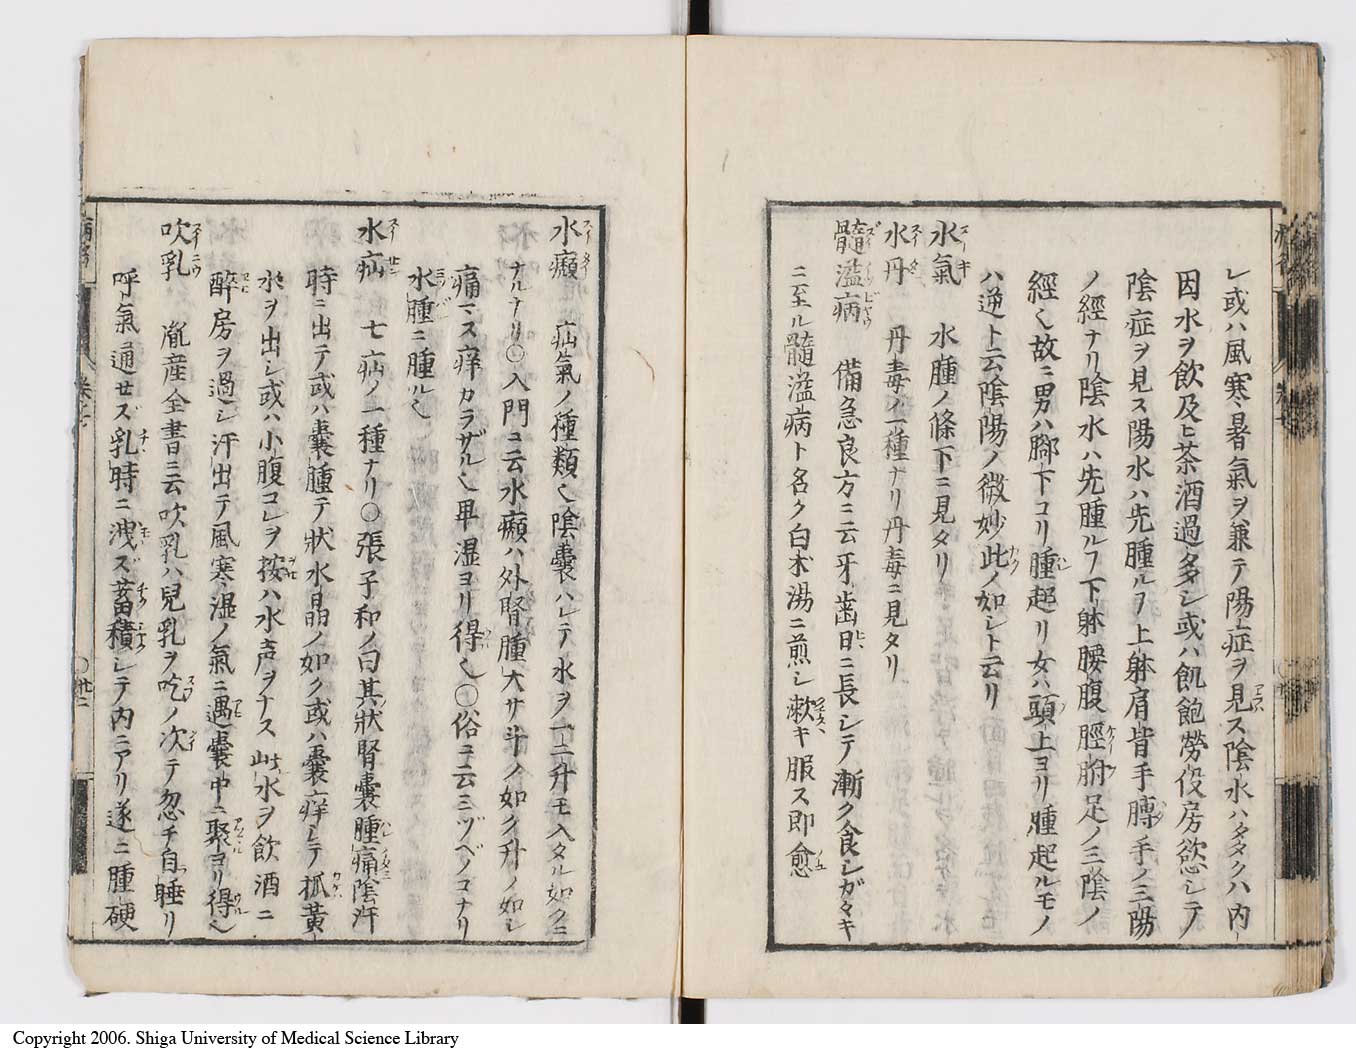 レ或ハ風寒暑氣ヲ兼テ陽症ヲ見ス陰水ハタタクハ内ー
因水ヲ飲及ヒ茶酒過多シ或ハ飢飽勞役房慾シテ
陰症ヲ見ス陽水ハ先腫ルヿ上躰肩背手膊手ノ三陽
ノ經ナリ陰水ハ先腫ルヿ下躰腰腹脛胕足ノ三陰ノ
經也故ニ男ハ脚下ヨリ腫起リ女ハ頭上ヨリ腫起ルモノ
ハ逆ト云陰陽ノ微妙此ノ如シト云リ
水氣 水腫ノ條下ニ見タリ
水丹 丹毒ノ一種ナリ丹毒ニ見タリ
髓溢病 備急良方ニ云牙歯日ニ長シテ漸ク食シガタキ
ニ至ル髓溢病ト名ク白朮湯ニ煎シ漱キ服ス即愈
水㿗 疝氣ノ種類也陰囊ハレテ水ヲ一二升モ入タル如クニ
ナルナリ○入門ニ云水㿗ハ外腎腫大サ斗ノ如ク升ノ如シ
痛マス痒カラザル也卑湿ヨリ得也○俗ニ云ミヅヘノコナリ
水腫ニ腫ル也
水疝 七疝ノ一種ナリ○張子和ノ曰其狀腎囊腫痛陰汗
時ニ出テ或ハ囊腫テ狀水晶ノ如ク或ハ囊痒シテ 黃
水ヲ出シ或ハ小腹コレヲ按ハ水声ヲナス此水ヲ飲酒ニ
醉房ヲ過シ汗出テ風寒湿ノ氣ニ遇囊中ニ聚ヨリ得也
吹乳 胤産全書ニ云吹乳ハ兒乳ヲ吃ノ次テ忽チ自睡リ
呼氣通セス乳時ニ洩ズ蓄積シテ内ニアリ遂ニ腫硬
Copyright 2006. Shiga University of Medical Science Library